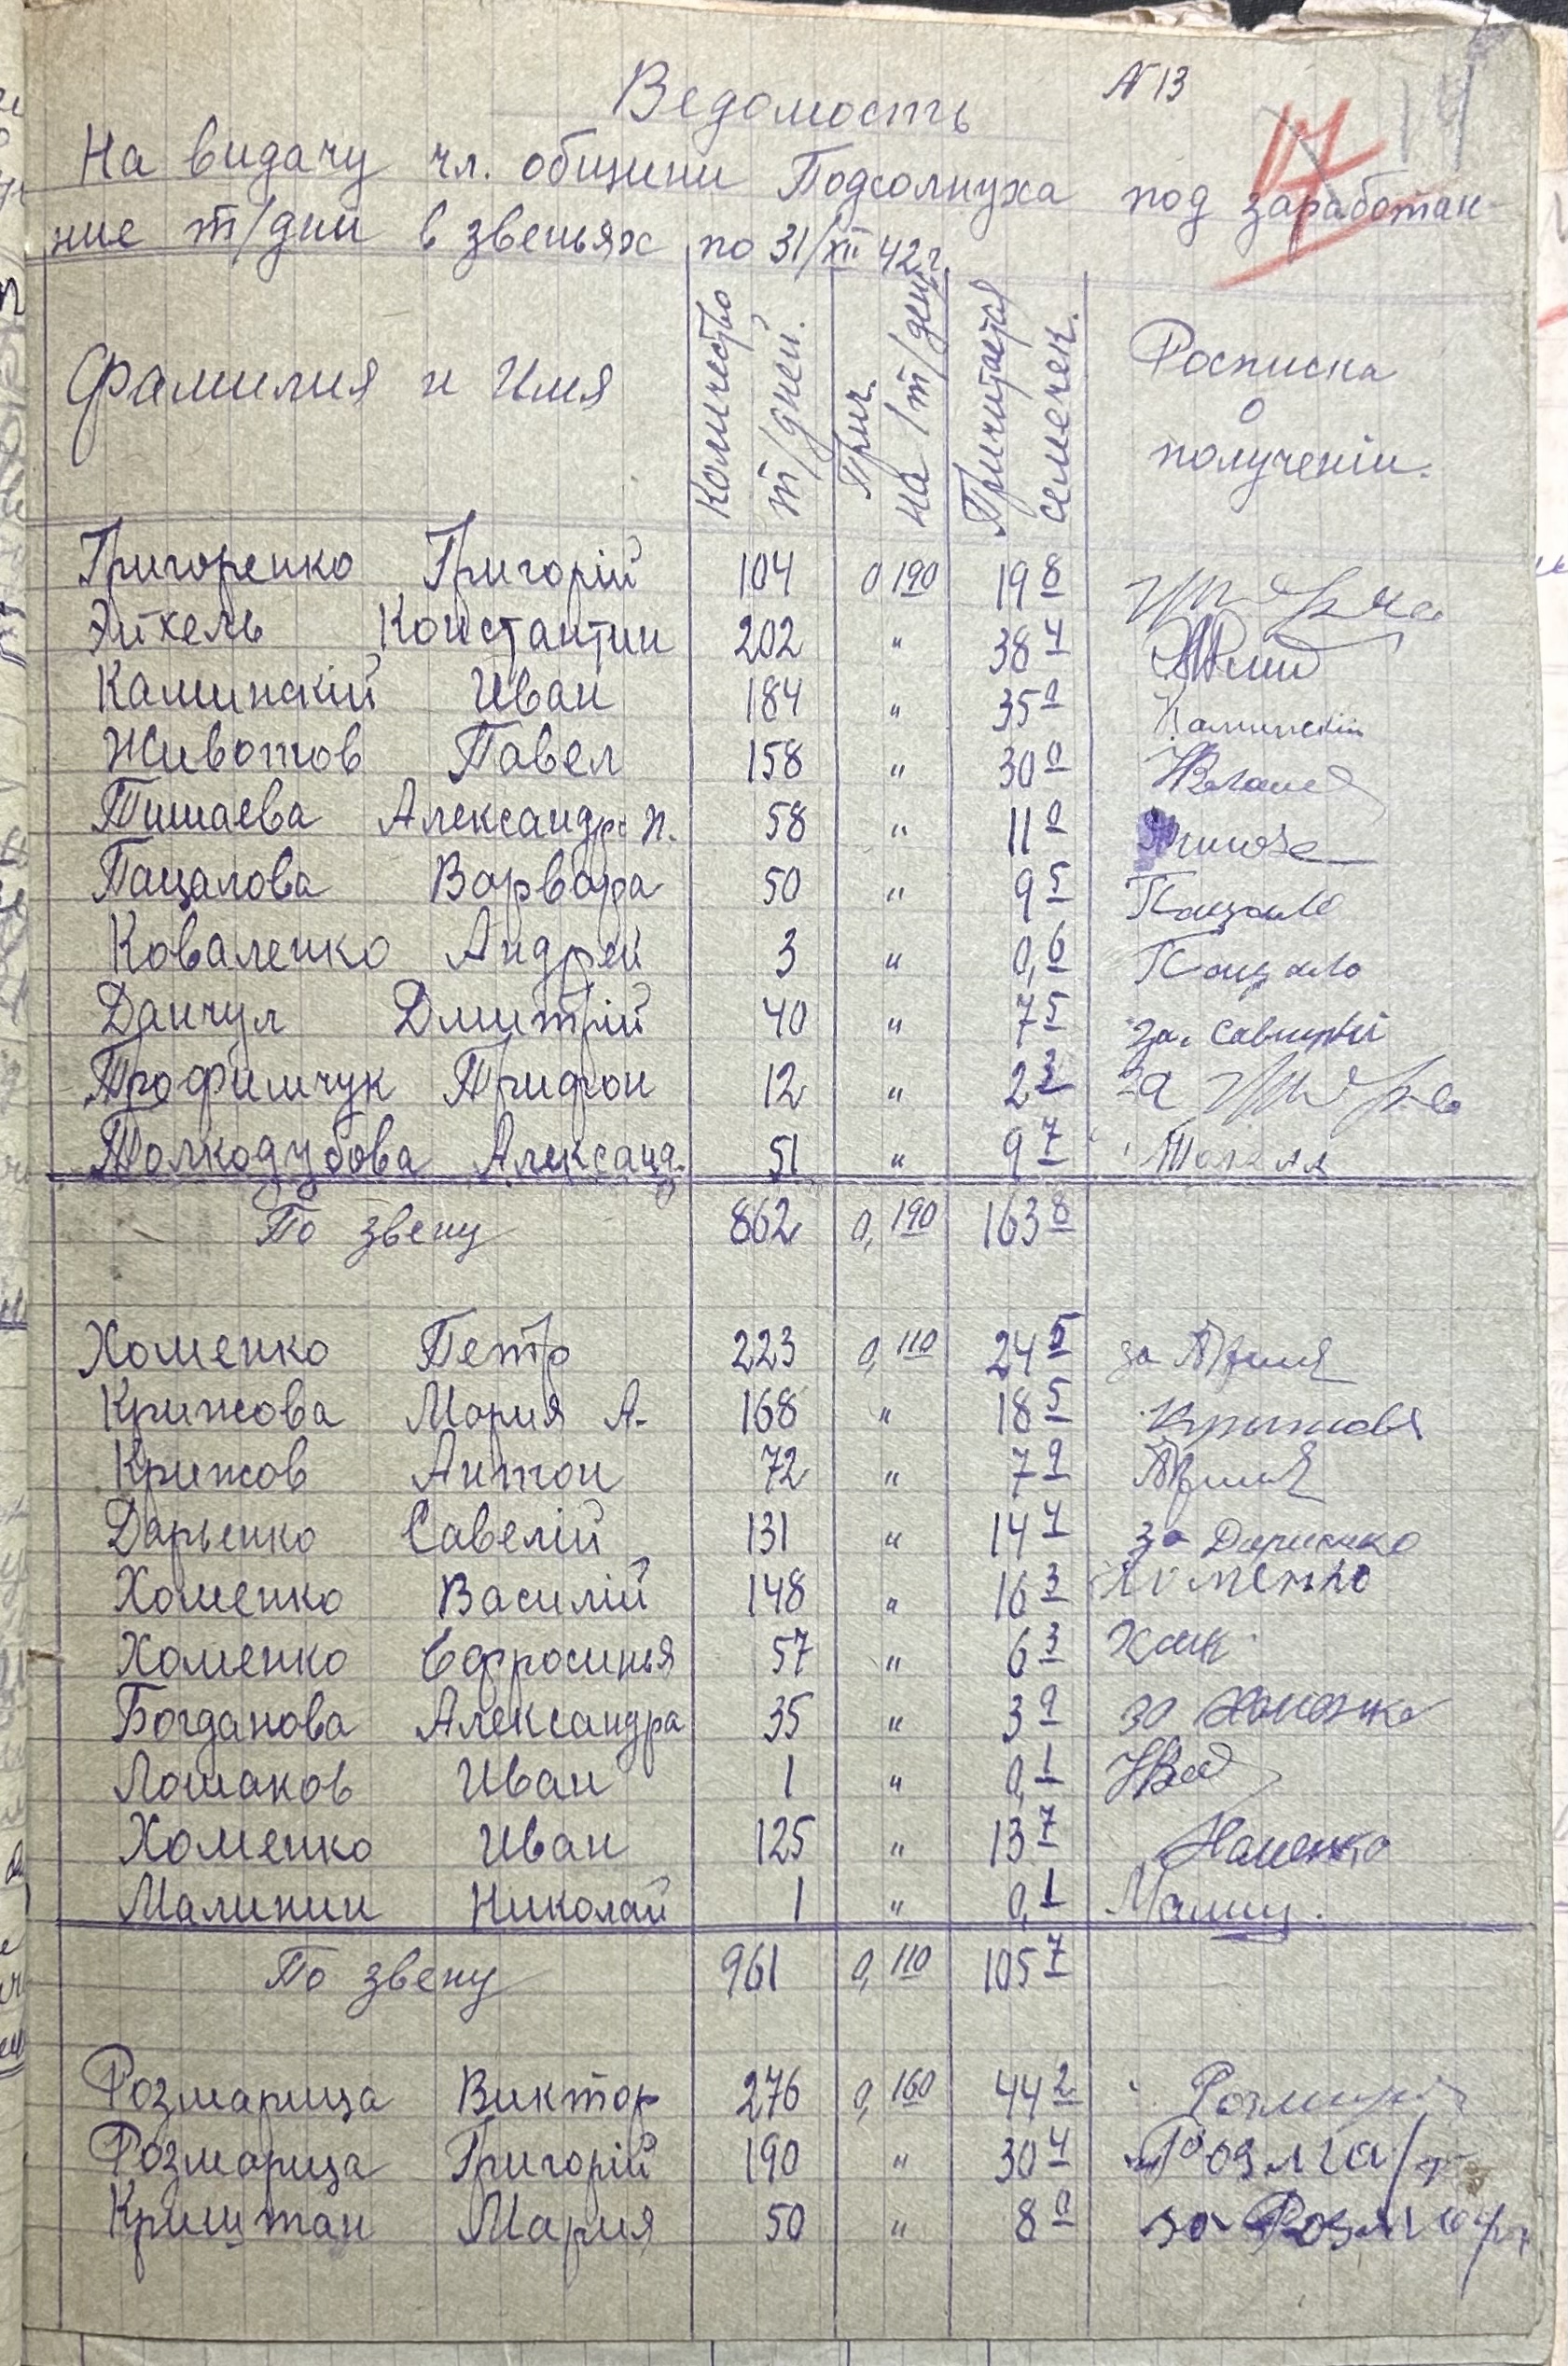 № 13
Ведомость
17
14
На видачу чл. общини Подсолнуха под заработан-
ние т/дни в звеньях по 31/XII 42 г.
Фамилия и Имя Количество т/дней. Прич. на 1 т/день Причитается семечек. Росписка о полученіи.
Григоренко Григорій 104 0 190 19 8
Эйхель Константин 202 " 38 4
Каминскій Иван 184 " 35 0 Каминскій
Животов Павел 158 " 30 0
Тишаева Александр П. 58 " 11 0
Пацалова Варвара 50 " 9 5 Пацало
Коваленко Андрей 3 " 0,6 Пацало
Данчул Дмитрій 40 " 7 5 за
Трофимчук Трифон 12 " 2 3 за
Толкодубова Александ. 51 " 9 7
По звену 862 0,190 163 8
Хоменко Петр 223 0,110 24 5 за
Крижова Мария А. 168 " 18 5 Крыжова
Крижов Антон 72 " 7 9
Дарьенко Савелій 131 " 14 4 за Дариенко
Хоменко Василій 148 " 16 3 Хоменко
Хоменко Ефросинья 57 " 6 3 Хом
Богданова Александра 35 " 3 9 за Хоменко
Лошаков Иван 1 " 0,1
Хоменко Иван 125 " 13 7 Хоменко
Малинин Николай 1 " 0,1 Малин.
По звену 961 0,110 105 7
Розмарица Виктор 276 0,160 44 2
Розмарица Григорій 190 " 30 4 Розмар
Криштан Мария 50 " 8 0 за Розмар